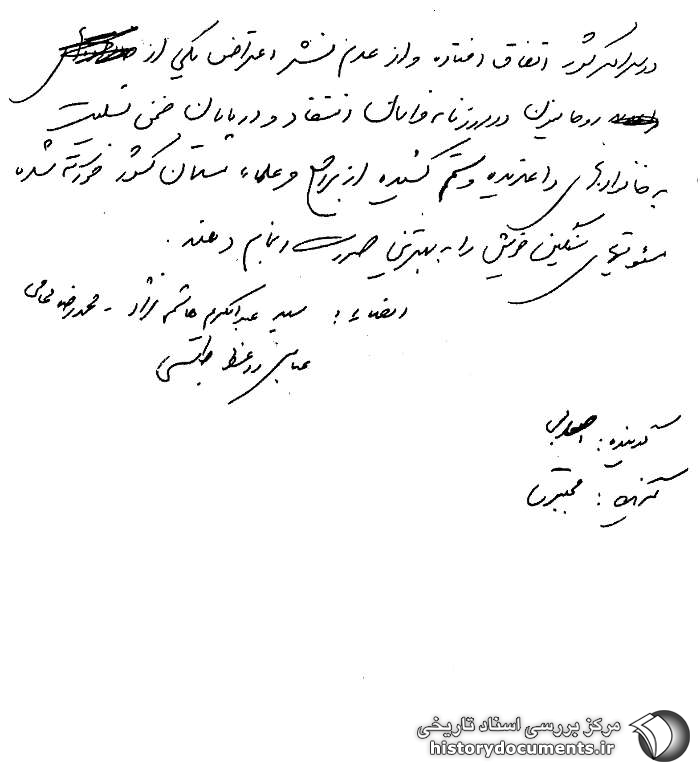 در سراسر کشور اتفاق افتاده و از عدم نشر اعتراض یکی از
روحانیون در روزنامه انتقاد و در پایان ضمن تسلیت
به خانوادههای داغدیده و ستم کشیده از مراجع و علماء استان کشور خواسته شده
مسئولیتهای سنگین خویش را به بهترین صورت انجام دهند .
امضاء : سید عبدالکریم هاشمی نژاد - محمدرضا محامی
عباس واعظ طبسی
گوینده :
گیرنده :
مرکز بررسی اسناد تاریخی
historydocuments.ir